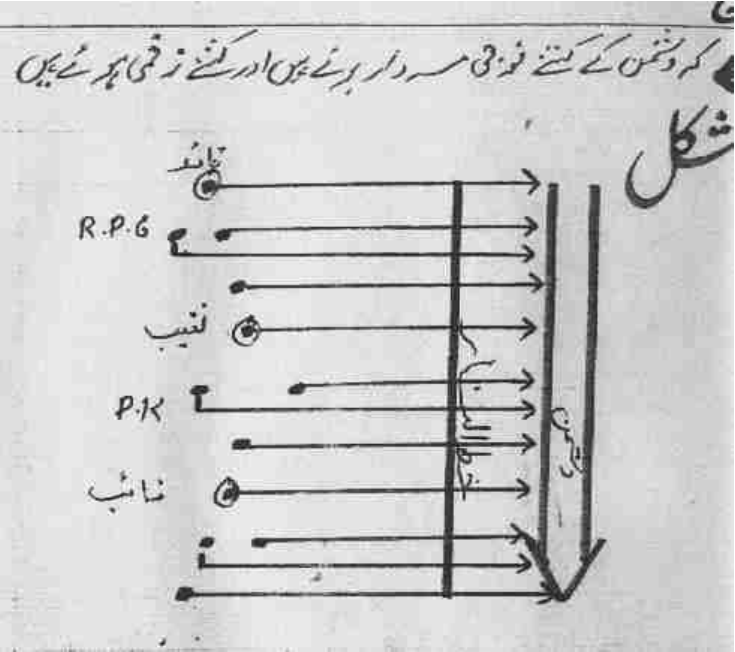 کہ دشمن کے کتنے فوجی مردار ہوئے ہیں اور کتنے زخمی ہوئے ہیں
شکل
قائد
R.P.G
نقیب
P.K
نائب
خط النار
دشمن